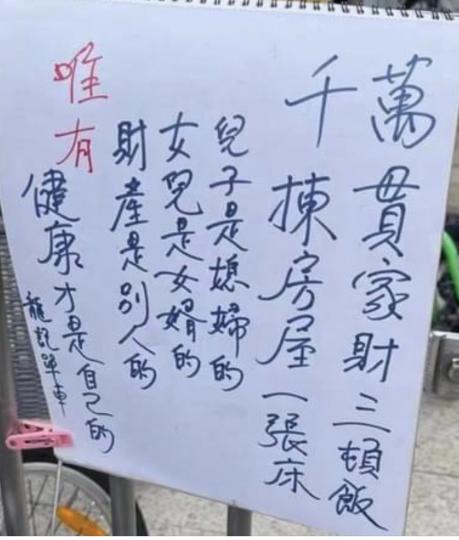 萬貫家財三頓飯
千棟房屋一張床
兒子是媳婦的
女兒是女婿的
財產是別人的
唯有健康才是自己的
龍記單車